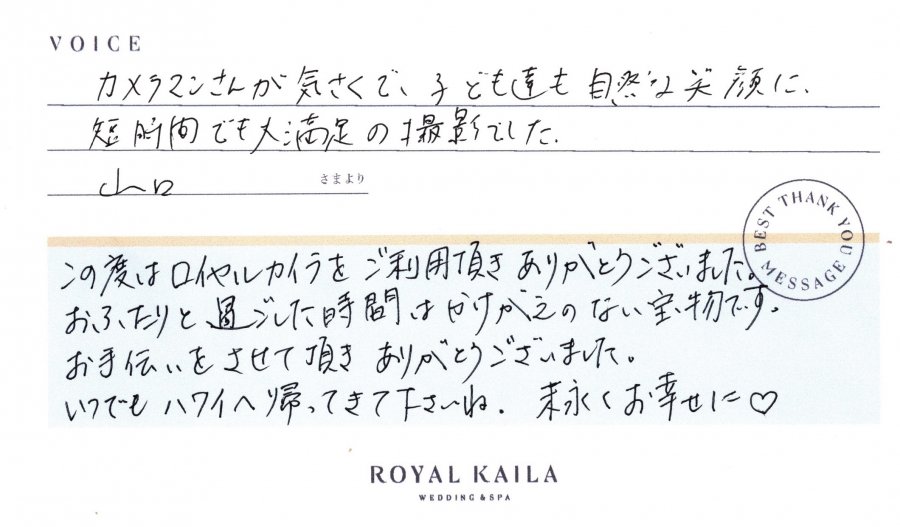 VOICE
カメラマンさんが気さくで、子ども達も自然な笑顔に、
短時間でも大満足の撮影でした。
山口 さまより
BEST THANK YOU MESSAGE
この度はロイヤルカイラをご利用頂きありがとうございました。
おふたりと過ごした時間はかけがえのない宝物です。
お手伝いをさせて頂きありがとうございました。
いつでもハワイへ帰ってきて下さいね。末永くお幸せに♡
ROYAL KAILA
WEDDING & SPA